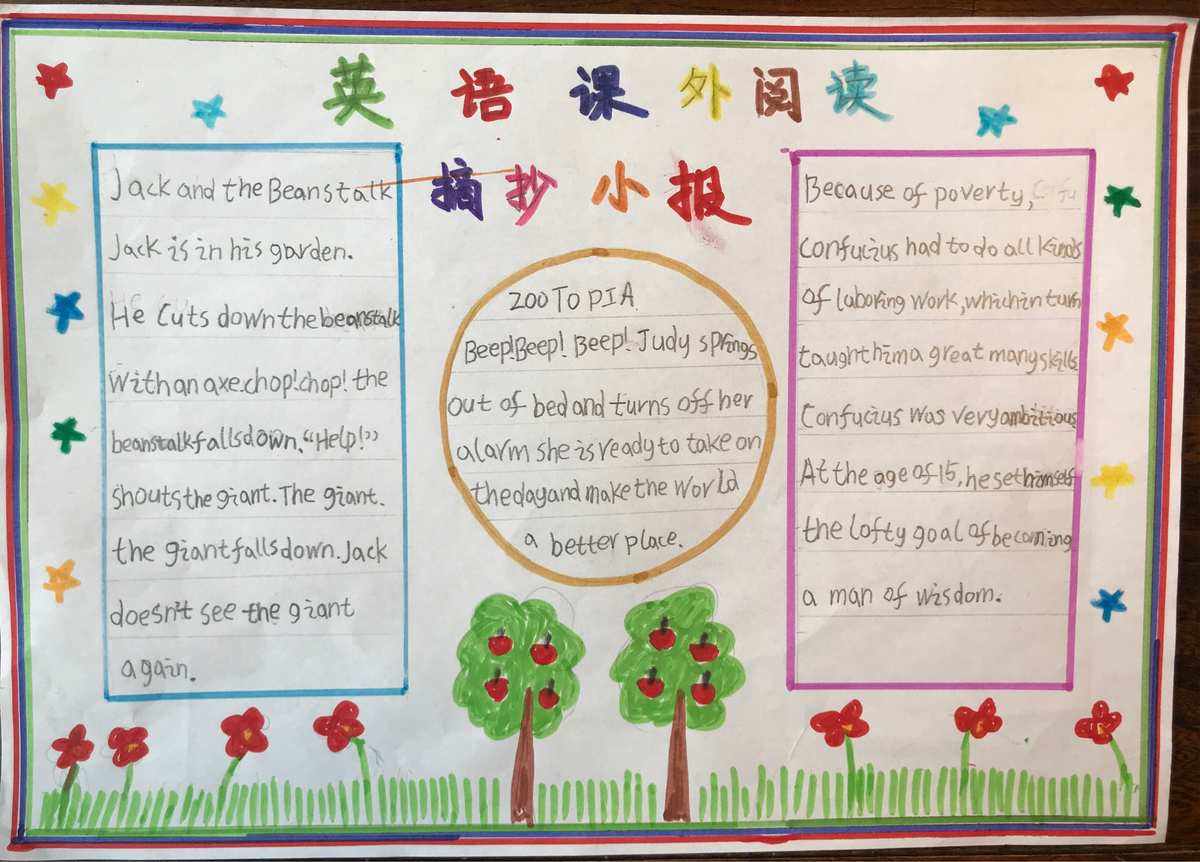 英语课外阅读
摘抄小报
Jack and the Beanstalk
Jack is in his garden.
He cuts down the beanstalk
with an axe.chop!chop! the
beanstalk falls down."Help!"
shouts the giant. The giant.
the giant falls down. Jack
doesn't see the giant
again.
ZOOTOPIA
Beep!Beep! Beep! Judy springs
out of bed and turns off her
alarm she is ready to take on
the day and make the world
a better place.
Because of poverty,
Confucius had to do all kinds
of laboring work, which in turn
taught him a great many skills
Confucius was very ambitious
At the age of 15, he set himself
the lofty goal of becoming
a man of wisdom.